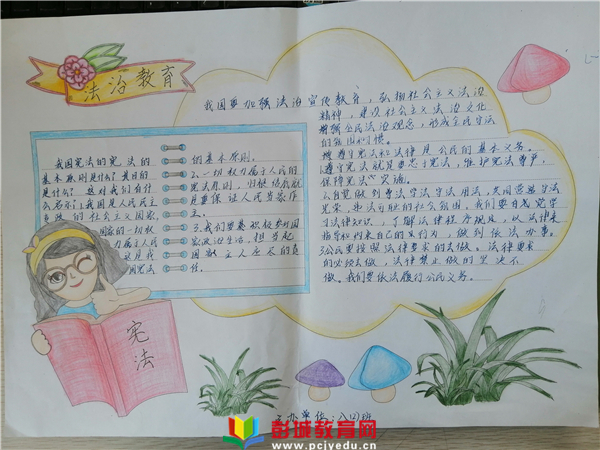 法治教育
我国要加强法治宣传教育，弘扬社会主义法治
精神，建设社会主义法治文化，
增强全民法治观念，形成全民守法
的氛围和习惯。
遵守宪法和法律是公民的基本义务。
1.遵守宪法就是要忠于宪法，维护宪法尊严，
保障宪法实施。
2.自觉做到尊法学法守法用法，
光荣，违法可耻的社会氛围。我们要自觉学
习法律知识，了解法律程序规定，以法律来
指导和约束自己的行为，做到依法办事。
3.公民要按照法律要求的去做。法律要求
的必须去做，法律禁止做的坚决不
做。我们要依法履行公民义务。
我国宪法的宪法的
基本原则是什么？其目的
是什么？这对我们有什
么启示？1.我国是人民民主
专政的社会主义国家，
国家的一切权
力属于人民
这是我
国宪法
的基本原则。
2.一切权力属于人民的
宪法原则，
是要保证人民当家作
主。
3.我们要积极参与国
家政治生活，担当起
国家主人应尽的责
任。
宪法
主办单位：八(2)班
彭城教育网
www.pcjyedu.cn